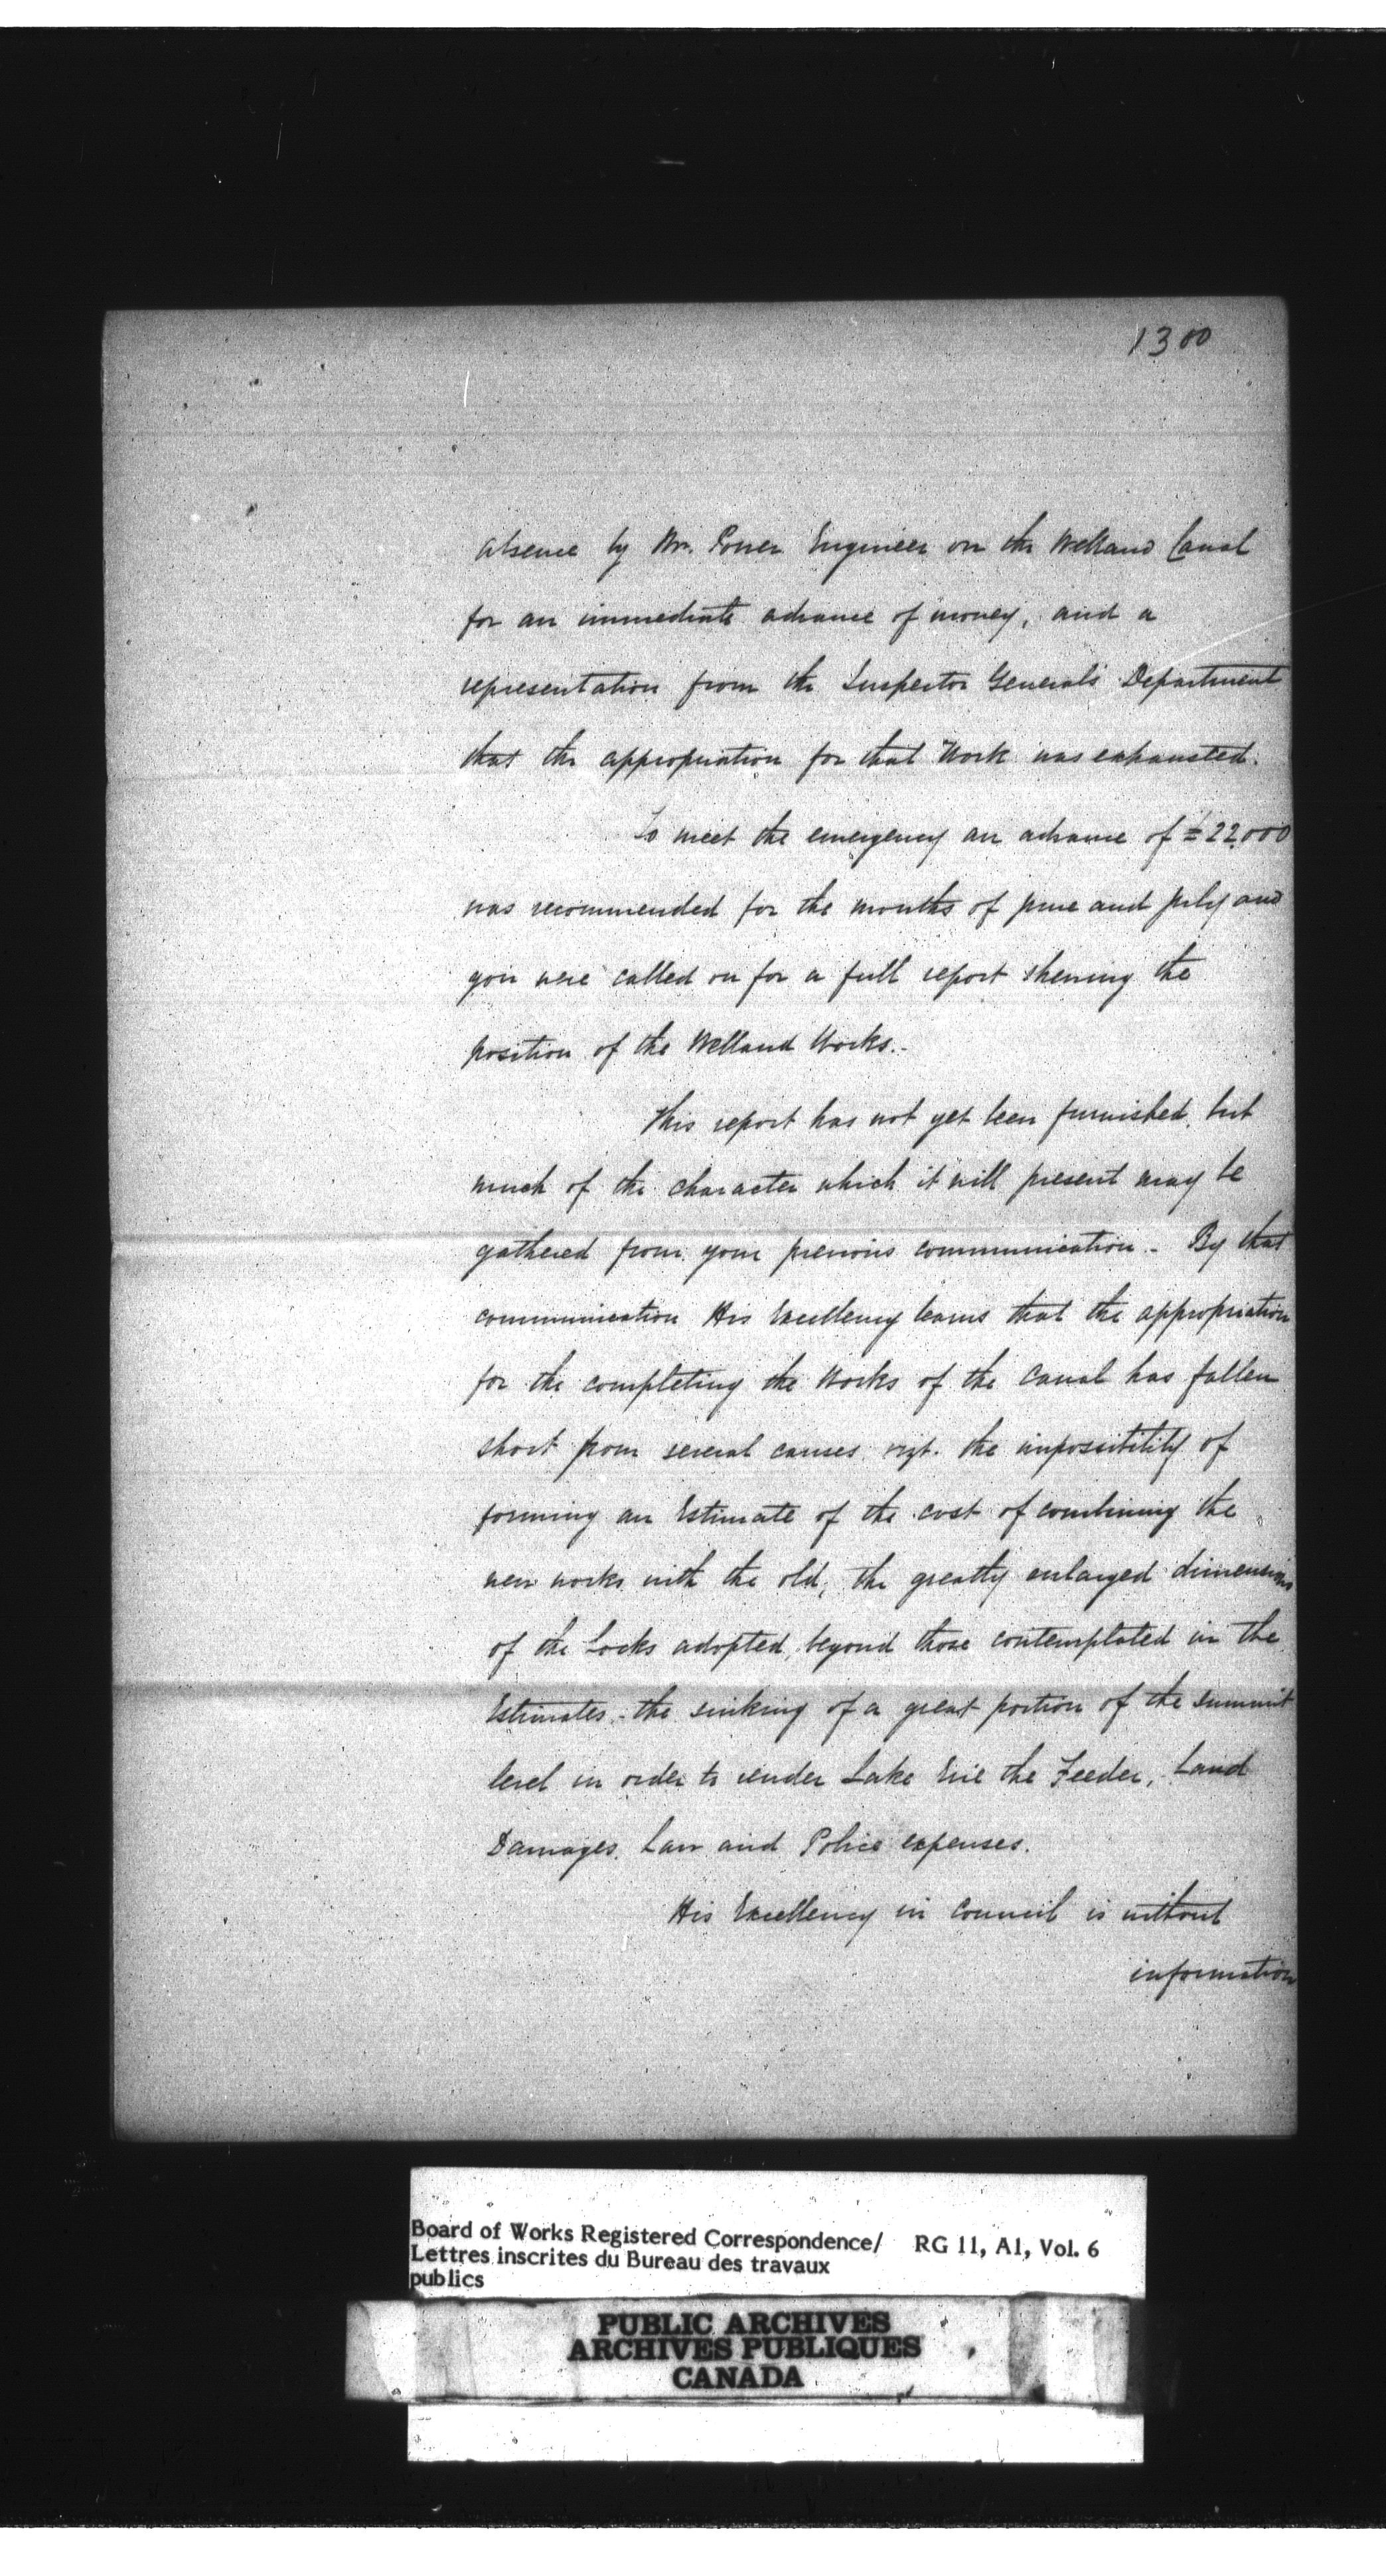 1300
absence by Mr. Power Engineer on the Welland Canal
for an immediate advance of money, and a
representation from the Inspector General's Department
that the appropriation for that Work was exhausted.
To meet the emergency an advance of £22,000
was recommended for the months of June and July and
you were called on for a full report shewing the
position of the Welland Works.-
This report has not yet been furnished, but
much of the character which it will present may be
gathered from your previous communication.- By that
communication His Excellency learns that the appropriation
for the completing the Works of the Canal has fallen
short from several causes vizt. the impossibility of
forming an Estimate of the cost of combining the
new works with the old, the greatly enlarged dimensions
of the Locks adopted, beyond those contemplated in the
Estimates,- the sinking of a great portion of the summit
level in order to render Lake Erie the Feeder, Land
Damages, Law and Police expenses.
His Excellency in Council is without
information
Board of Works Registered Correspondence/ RG 11, A1, Vol. 6
Lettres inscrites du Bureau des travaux
publics
PUBLIC ARCHIVES
ARCHIVES PUBLIQUES
CANADA